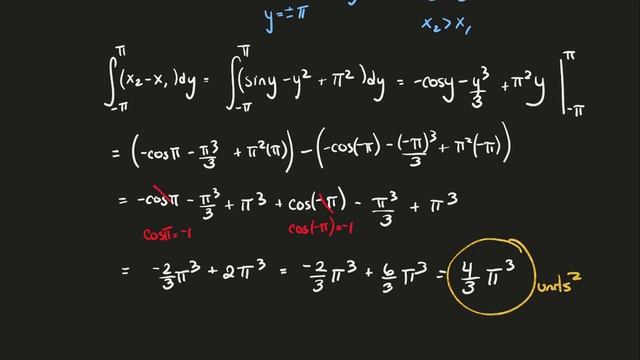 y=±π
x₂>x₁
∫_{-π}^{π} (x₂-x₁)dy = ∫_{-π}^{π} (siny-y²+π²)dy = -cosy - y³/3 + π²y |_{-π}^{π}
= (-cosπ - π³/3 + π²(π)) - (-cos(-π) - (-π)³/3 + π²(-π))
= -cosπ - π³/3 + π³ + cos(-π) - π³/3 + π³
cosπ=-1 cos(-π)=-1
= -2/3 π³ + 2π³ = -2/3 π³ + 6/3 π³ = 4/3 π³ units²